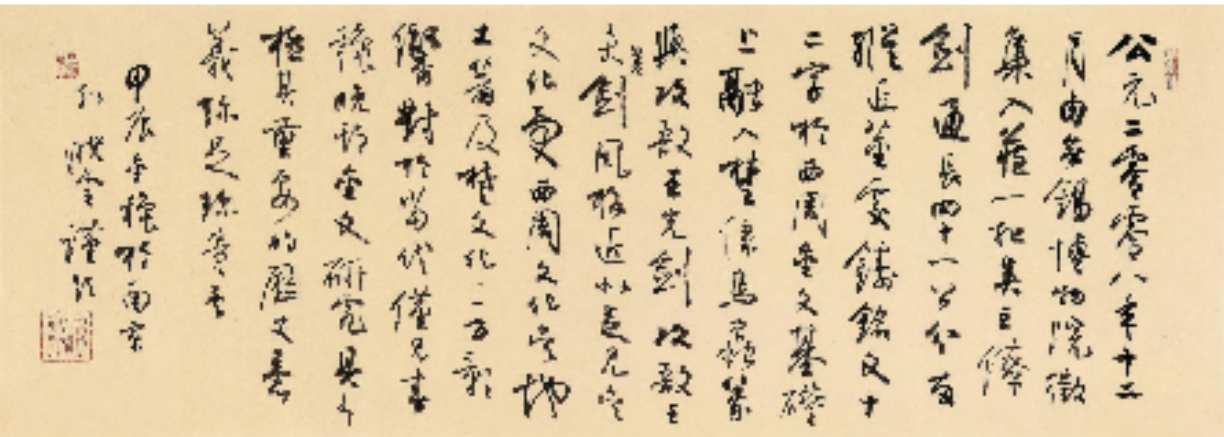 公元二零零八年十二
月由無錫博物院徵
集入藏一批吳王僚
劍通長四十一公分有
縱近莖處鑄銘文十
二字於西周金文基礎
上融入楚系鳥蟲篆
與攻敔王光劍攻敔王
夫劍風格近似是吳
文化受西周文化
土著及楚文化
響對於當代僅見
讀晚期金文研究具
極其重要的歷史意
義殊是珍貴
甲辰金秋於南京
謹記